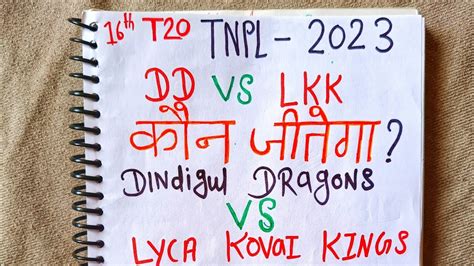 16th T20 TNPL - 2023
DD VS LKK
कौन जीतेगा?
Dindigul DRagons
VS
LYCA KOVAI KINGS